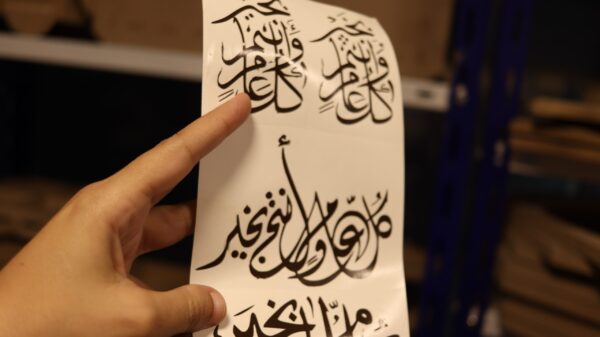 كل عام وأنتم بخير
كل عام وأنتم بخير
كل عام وأنتم بخير
بخير